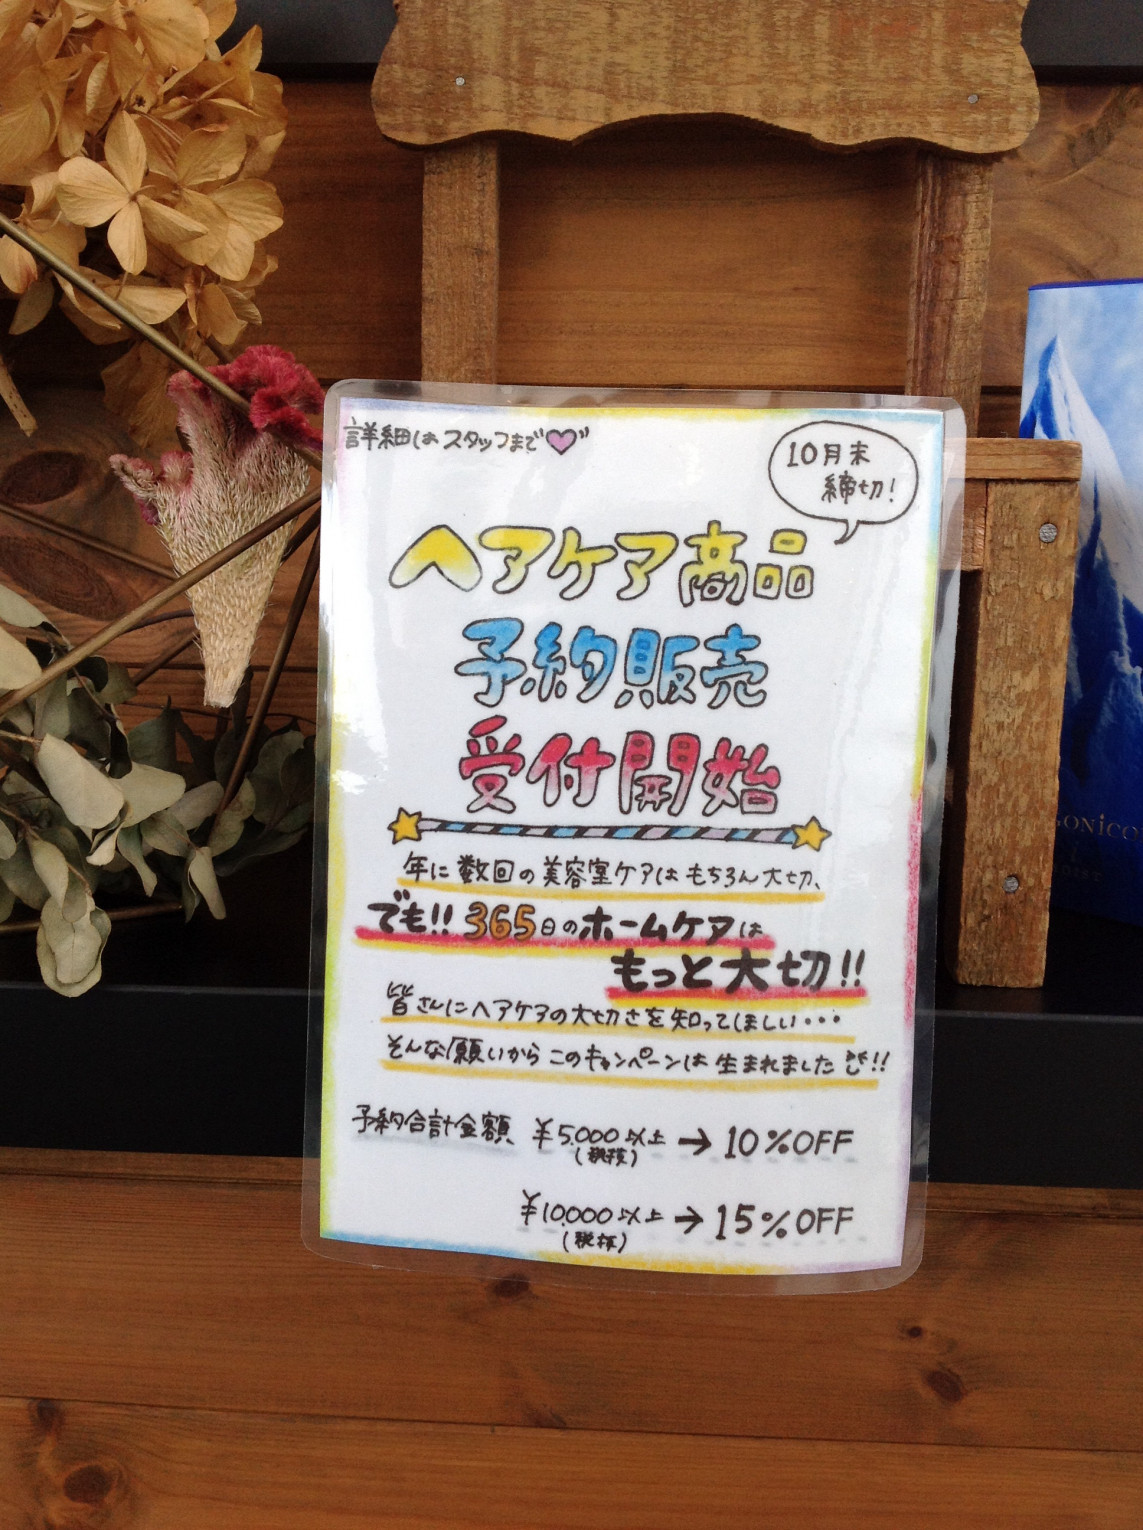 詳細はスタッフまで♥"
10月末
締切!
ヘアケア商品
予約販売
受付開始
年に数回の美容室ケアはもちろん大切、
でも!! 365日のホームケアは
もっと大切!!
皆さんにヘアケアの大切さを知ってほしい・・・
そんな願いからこのキャンペーンは生まれました!!
予約合計金額 ¥5.000以上→10%OFF
(税抜)
¥10.000以上→15%OFF
(税抜)